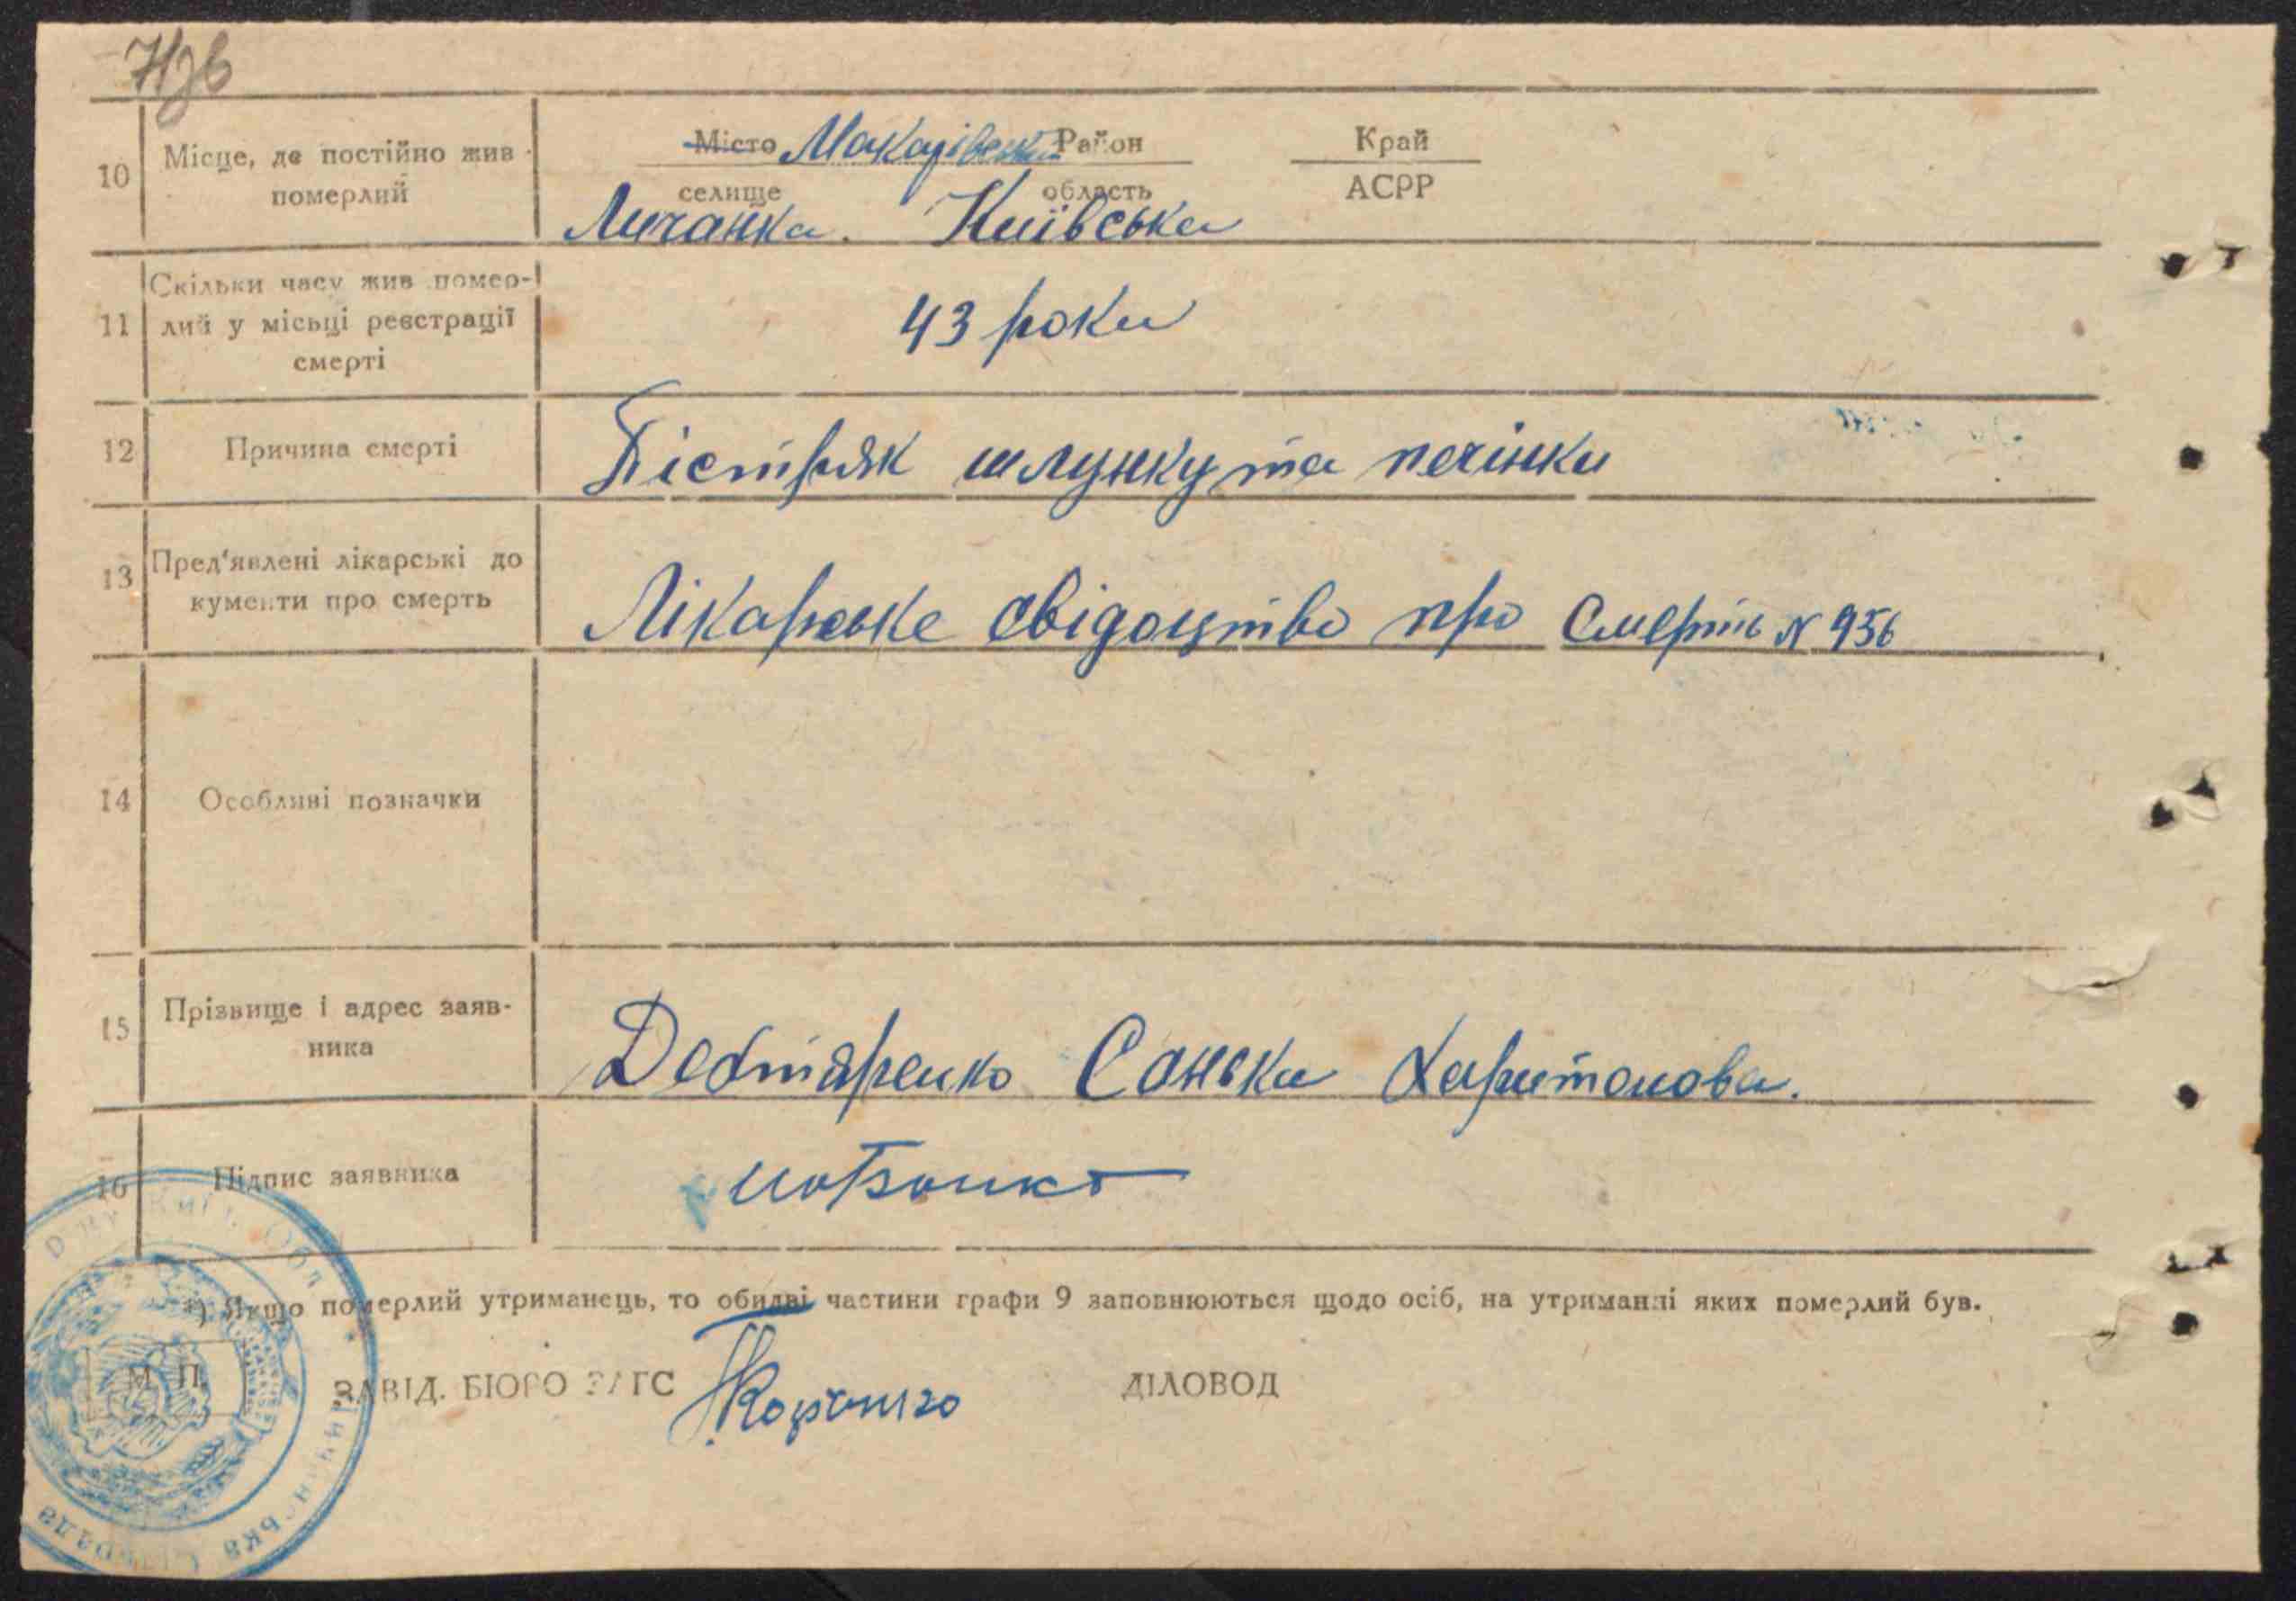 10 Місце, де постійно жив померлий
Місто Макарівський Район Край
селище область АСРР
Личанка. Київська
11 Скільки часу жив помер-
лий у місьці реєстрації
смерті
43 роки
12 Причина смерті
Пістряк шлунку та печінки
13 Пред'явлені лікарські до
кументи про смерть
Лікарське свідоцтво про Смерть N 956
14 Особливі позначки
15 Прізвище і адрес заяв-
ника
Дехтяренко Санька Харитонова.
16 Підпис заявника
*) Якщо померлий утриманець, то обидві частини графи 9 заповнюються щодо осіб, на утриманні яких померлий був.
М П
ЗАВІД. БЮРО ЗАГС ДІЛОВОД